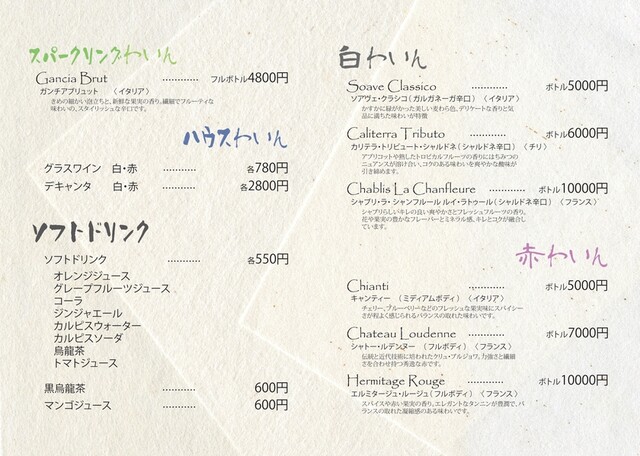 スパークリングわいん
Gancia Brut ............ フルボトル4800円
ガンチアブリュット （イタリア）
きめの細かい泡立ちと、新鮮な果実の香り、繊細でフルーティな
味わいの、スタイリッシュな辛口です。
ハウスわいん
グラスワイン 白・赤 ........... 各780円
デキャンタ 白・赤 ........... 各2800円
ソフトドリンク
ソフトドリンク ........... 各550円
オレンジジュース
グレープフルーツジュース
コーラ
ジンジャエール
カルピスウォーター
カルピスソーダ
烏龍茶
トマトジュース
黒烏龍茶 ........... 600円
マンゴジュース ........... 600円
白わいん
Soave Classico ............ ボトル5000円
ソアヴェ・クラシコ（ガルガネーガ辛口） （イタリア）
かすかに緑がかった美しい麦わら色、デリケートな香りと気
品に満ちた味わいが特徴
Caliterra Tributo ............ ボトル6000円
カリテラ・トリビュート・シャルドネ（シャルドネ辛口） （チリ）
アプリコットや熟したトロピカルフルーツの香りにはちみつの
ニュアンスが溶け合い、コクのある味わいを爽やかな酸味が
引き締めます。
Chablis La Chanfleure ............ ボトル10000円
シャブリ・ラ・シャンフルール ルイ・ラトゥール（シャルドネ辛口） （フランス）
シャブリらしいキレの良い爽やかさとフレッシュフルーツの香り。
花や果実の豊かなフレーバーとミネラル感、キレとコクが融合し
ています。
赤わいん
Chianti ............ ボトル5000円
キャンティー （ミディアムボディ） （イタリア）
チェリー、ブルーベリーなどのフレッシュな果実味にスパイシー
さが程よく感じられるバランスの取れた味わいです。
Chateau Loudenne ............ ボトル7000円
シャトー・ルデンヌー （フルボディ） （フランス）
伝統と近代技術に培われたクリュ・ブルジョワ。力強さと繊細
さを合わせ持つ秀逸な赤です。
Hermitage Rouge ............ ボトル10000円
エルミタージュ・ルージュ（フルボディ） （フランス）
スパイスや赤い果実の香り、エレガントなタンニンが豊潤で、バ
ランスの取れた凝縮感のある味わいです。